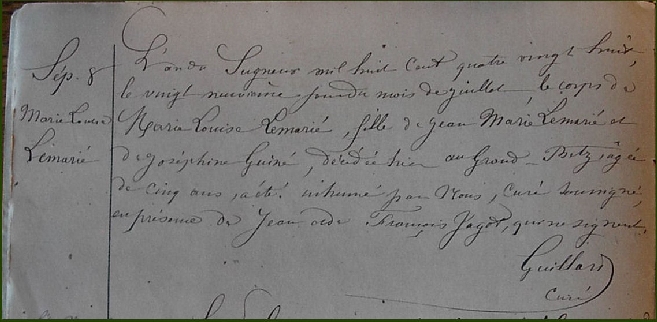 Sép. 8
Marie Louise
Lemarié
L'an du Seigneur mil huit cent quatre vingt huit,
le vingt neuvième jour du mois de juillet, le corps de
Marie Louise Lemarié, fille de Jean Marie Lemarié et
de Joséphine Guiné, décédée hier au Grand-Betz, âgée
de cinq ans, a été inhumé par Nous, curé soussigné,
en présence de Jean et de François Jagot, qui ne signent.
Guillard
Curé